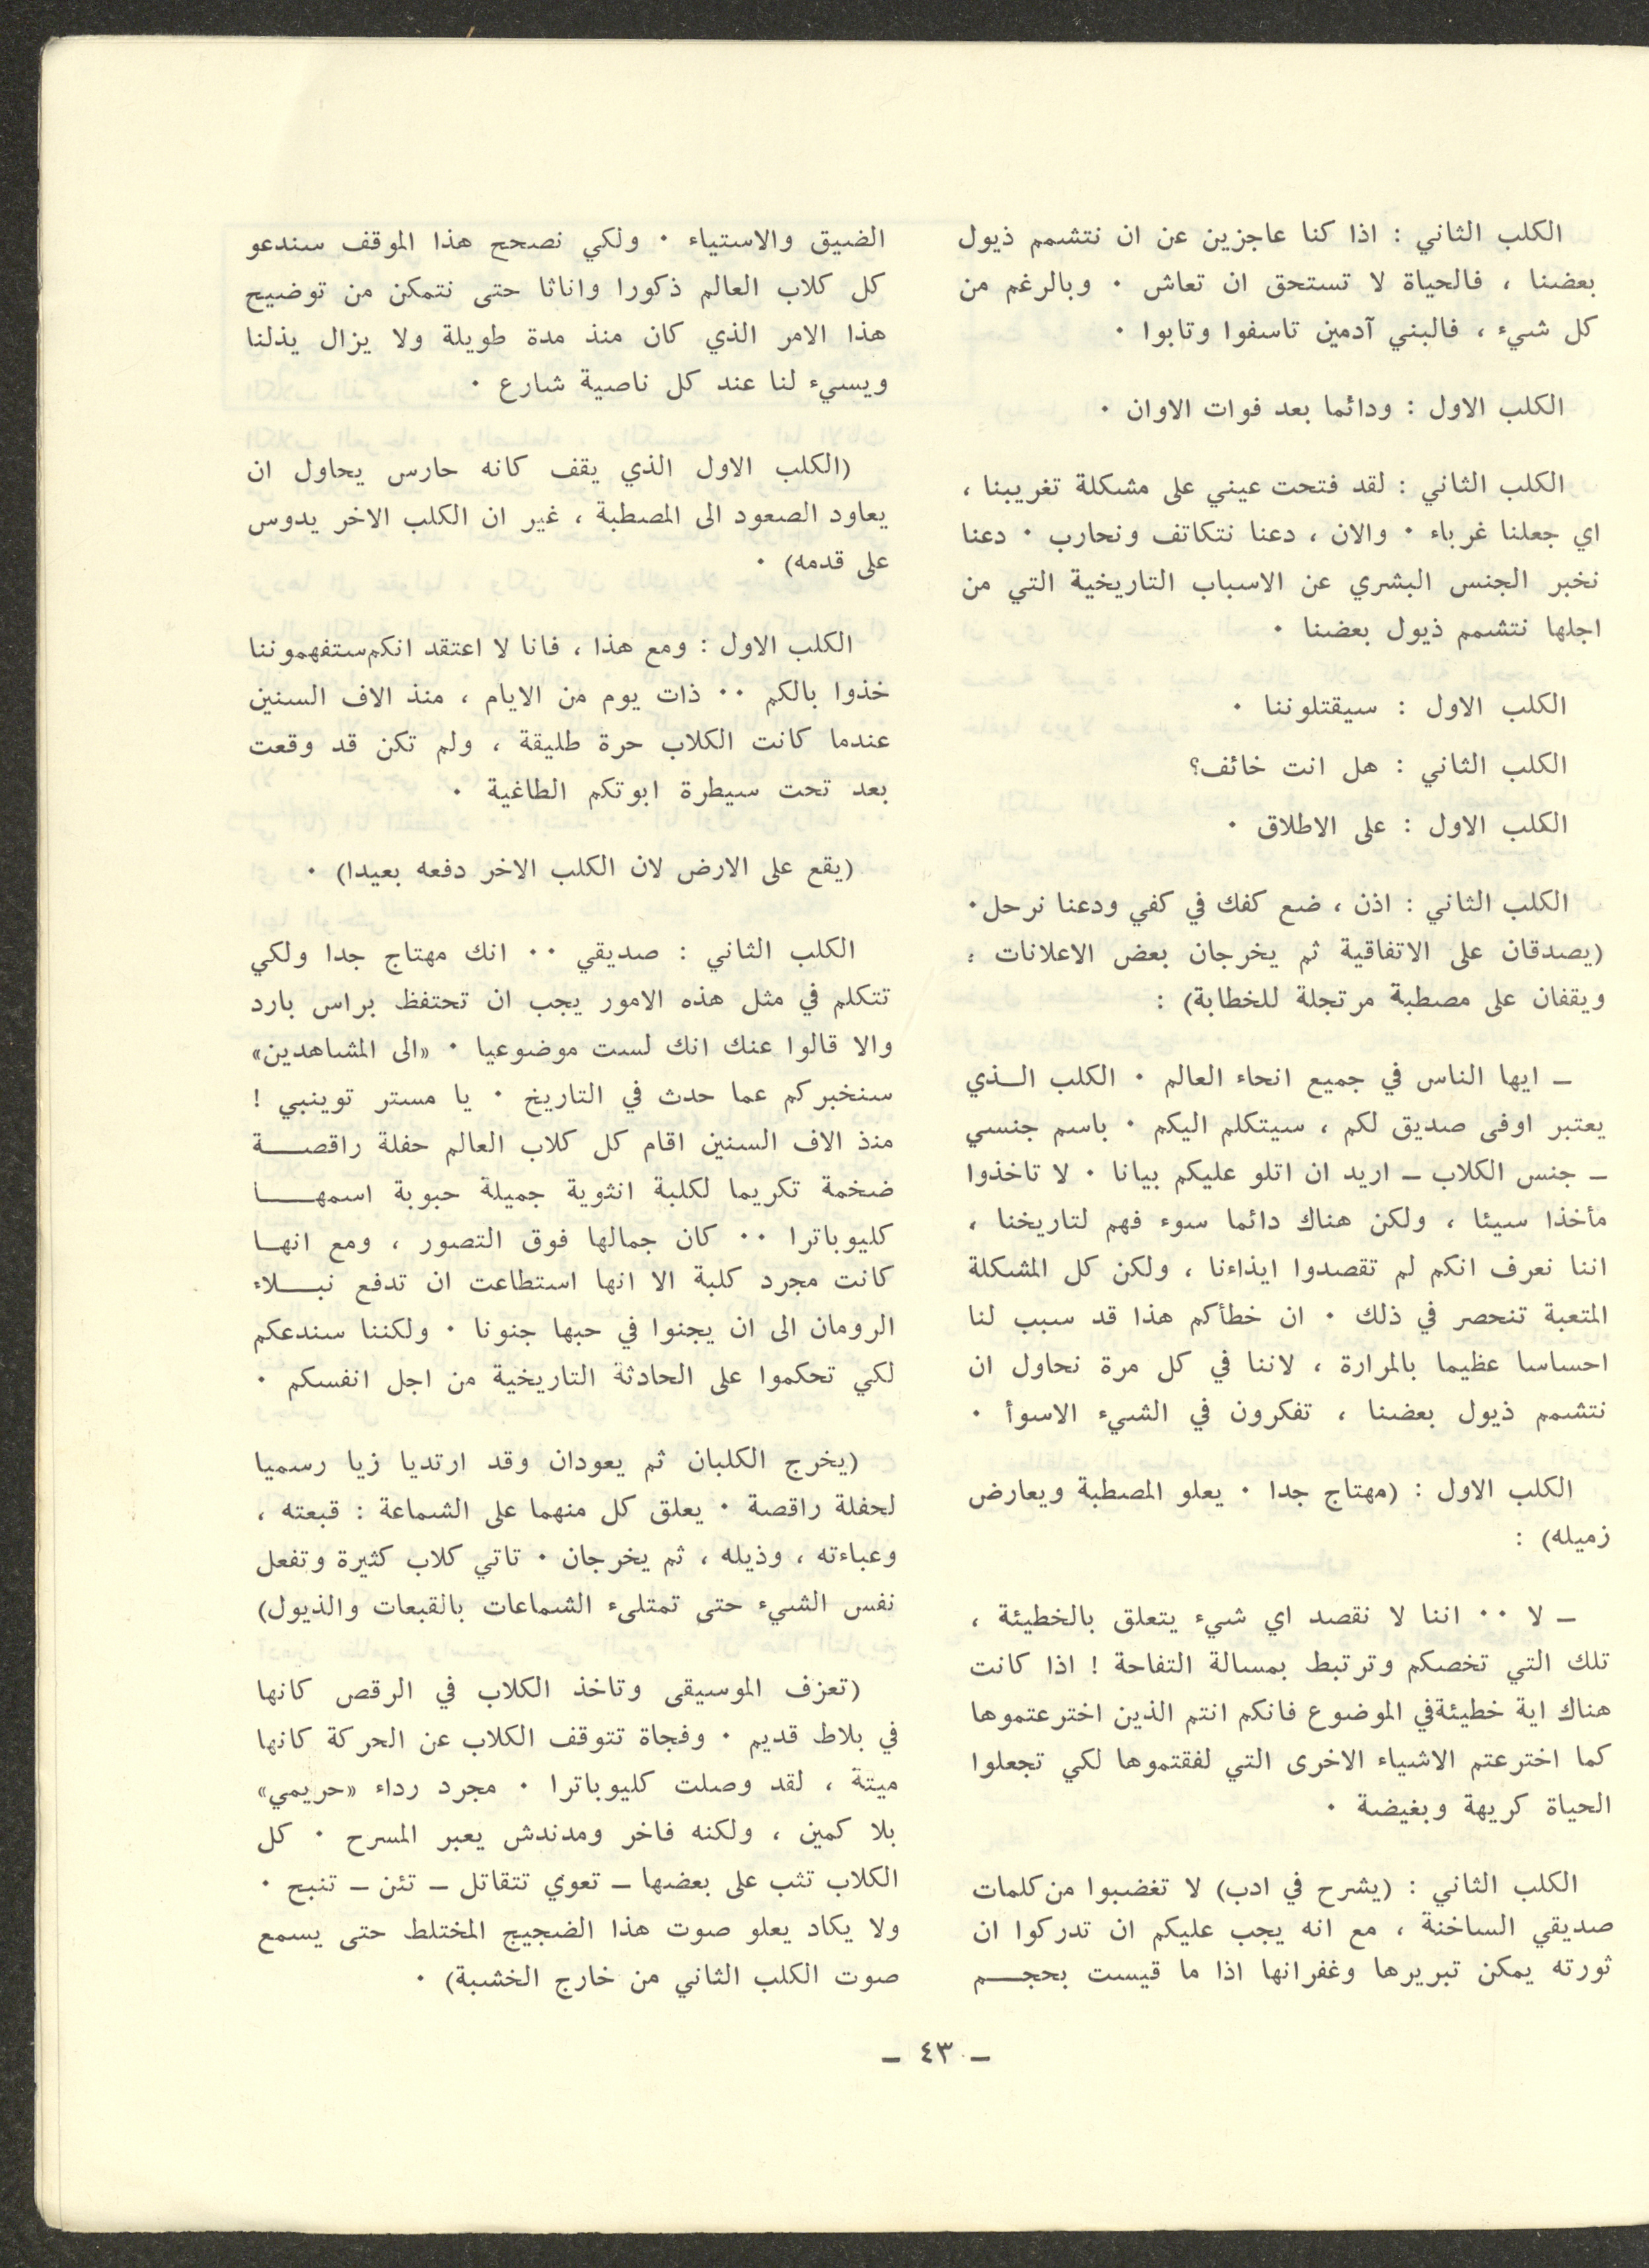 الكلب الثاني : اذا كنا عاجزين عن ان نتشمم ذيول
بعضنا ، فالحياة لا تستحق ان تعاش . وبالرغم من
كل شيء ، فالبني آدمين تاسفوا وتابوا .
الكلب الاول : ودائما بعد فوات الاوان .
الكلب الثاني : لقد فتحت عيني على مشكلة تغريبنا ،
اي جعلنا غرباء . والان ، دعنا نتكاتف ونحارب . دعنا
نخبر الجنس البشري عن الاسباب التاريخية التي من
اجلها نتشمم ذيول بعضنا .
الكلب الاول : سيقتلوننا .
الكلب الثاني : هل انت خائف؟
الكلب الاول : على الاطلاق .
الكلب الثاني : اذن ، ضع كفك في كفي ودعنا نرحل.
(يصدقان على الاتفاقية ثم يخرجان بعض الاعلانات ،
ويقفان على مصطبة مرتجلة للخطابة) :
ـ ايها الناس في جميع انحاء العالم . الكلب الــذي
يعتبر اوفى صديق لكم ، سيتكلم اليكم . باسم جنسي
ـ جنس الكلاب ـ اريد ان اتلو عليكم بيانا . لا تاخذوا
مأخذا سيئا ، ولكن هناك دائما سوء فهم لتاريخنا ،
اننا نعرف انكم لم تقصدوا ايذاءنا ، ولكن كل المشكلة
المتعبة تنحصر في ذلك . ان خطأكم هذا قد سبب لنا
احساسا عظيما بالمرارة ، لاننا في كل مرة نحاول ان
نتشمم ذيول بعضنا ، تفكرون في الشيء الاسوأ .
الكلب الاول : (مهتاج جدا . يعلو المصطبة ويعارض
زميله) :
ـ لا .. اننا لا نقصد اي شيء يتعلق بالخطيئة ،
تلك التي تخصكم وترتبط بمسالة التفاحة ! اذا كانت
هناك اية خطيئةفي الموضوع فانكم انتم الذين اخترعتموها
كما اخترعتم الاشياء الاخرى التي لفقتموها لكي تجعلوا
الحياة كريهة وبغيضة .
الكلب الثاني : (يشرح في ادب) لا تغضبوا من كلمات
صديقي الساخنة ، مع انه يجب عليكم ان تدركوا ان
ثورته يمكن تبريرها وغفرانها اذا ما قيست بحجــــم
الضيق والاستياء . ولكي نصحح هذا الموقف سندعو
كل كلاب العالم ذكورا واناثا حتى نتمكن من توضيح
هذا الامر الذي كان منذ مدة طويلة ولا يزال يذلنا
ويسيء لنا عند كل ناصية شارع .
(الكلب الاول الذي يقف كانه حارس يحاول ان
يعاود الصعود الى المصطبة ، غير ان الكلب الاخر يدوس
على قدمه) .
الكلب الاول : ومع هذا ، فانا لا اعتقد انكم ستفهموننا
خذوا بالكم .. ذات يوم من الايام ، منذ الاف السنين
عندما كانت الكلاب حرة طليقة ، ولم تكن قد وقعت
بعد تحت سيطرة ابوتكم الطاغية .
(يقع على الارض لان الكلب الاخر دفعه بعيدا) .
الكلب الثاني : صديقي .. انك مهتاج جدا ولكي
تتكلم في مثل هذه الامور يجب ان تحتفظ براس بارد
والا قالوا عنك انك لست موضوعيا . «الى المشاهدين»
سنخبركم عما حدث في التاريخ . يا مستر توينبي !
منذ الاف السنين اقام كل كلاب العالم حفلة راقصــــة
ضخمة تكريما لكلبة انثوية جميلة حبوبة اسمهـــــا
كليوباترا .. كان جمالها فوق التصور ، ومع انهــا
كانت مجرد كلبة الا انها استطاعت ان تدفع نبـــلاء
الرومان الى ان يجنوا في حبها جنونا . ولكننا سندعكم
لكي تحكموا على الحادثة التاريخية من اجل انفسكم .
(يخرج الكلبان ثم يعودان وقد ارتديا زيا رسميا
لحفلة راقصة . يعلق كل منهما على الشماعة : قبعته ،
وعباءته ، وذيله ، ثم يخرجان . تاتي كلاب كثيرة وتفعل
نفس الشيء حتى تمتلىء الشماعات بالقبعات والذيول)
(تعزف الموسيقى وتاخذ الكلاب في الرقص كانها
في بلاط قديم . وفجاة تتوقف الكلاب عن الحركة كانها
ميتة ، لقد وصلت كليوباترا . مجرد رداء «حريمي»
بلا كمين ، ولكنه فاخر ومدندش يعبر المسرح . كل
الكلاب تثب على بعضها ـ تعوي تتقاتل ـ تئن ـ تنبح .
ولا يكاد يعلو صوت هذا الضجيج المختلط حتى يسمع
صوت الكلب الثاني من خارج الخشبة) .
ـ ٤٣ ـ